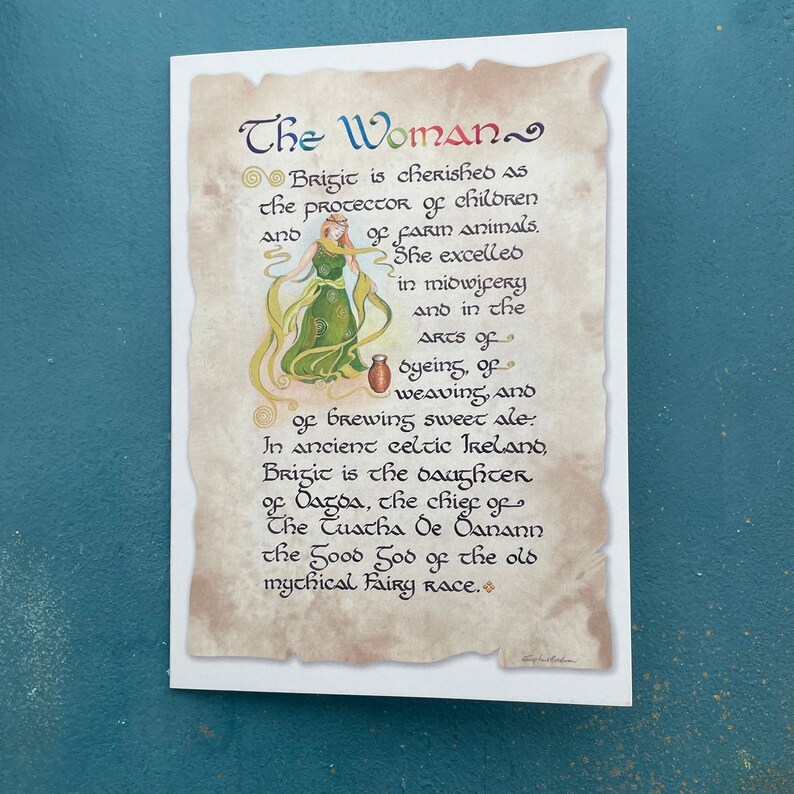 The Woman
Brigit is cherished as
the protector of children
and of farm animals.
She excelled
in midwifery
and in the
arts of
dyeing, of
weaving, and
of brewing sweet ale.
In ancient celtic Ireland,
Brigit is the daughter
of Dagda, the chief of
The Tuatha De Danann
the Good God of the old
mythical Fairy race.